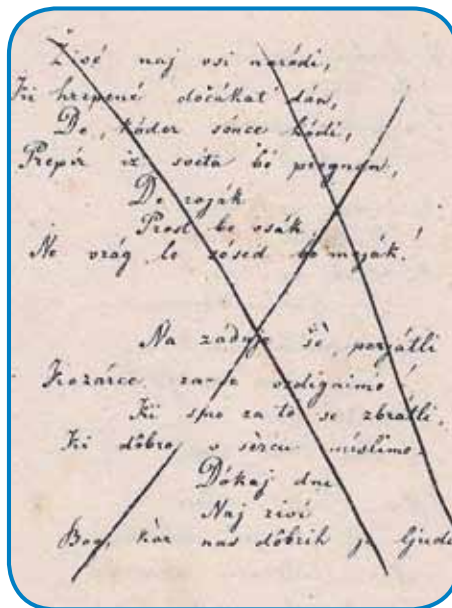 Živé naj vsi naródi,
Ki hrepené dočákat' dán,
De, kóder sónce hódi,
Prepír iz svéta bó pregnan,
De roják
Prost bo vsák,
Ne vrág, le sósed bo meják!
Na zádnje še, perjátli
Kozárce za-se vzdignimo!
Ki smo za to se zbrátli,
Ki dôbro v sèrcu míslimo.
Dókaj dni
Naj živí
Bog, kàr nas dôbrih je ljudi